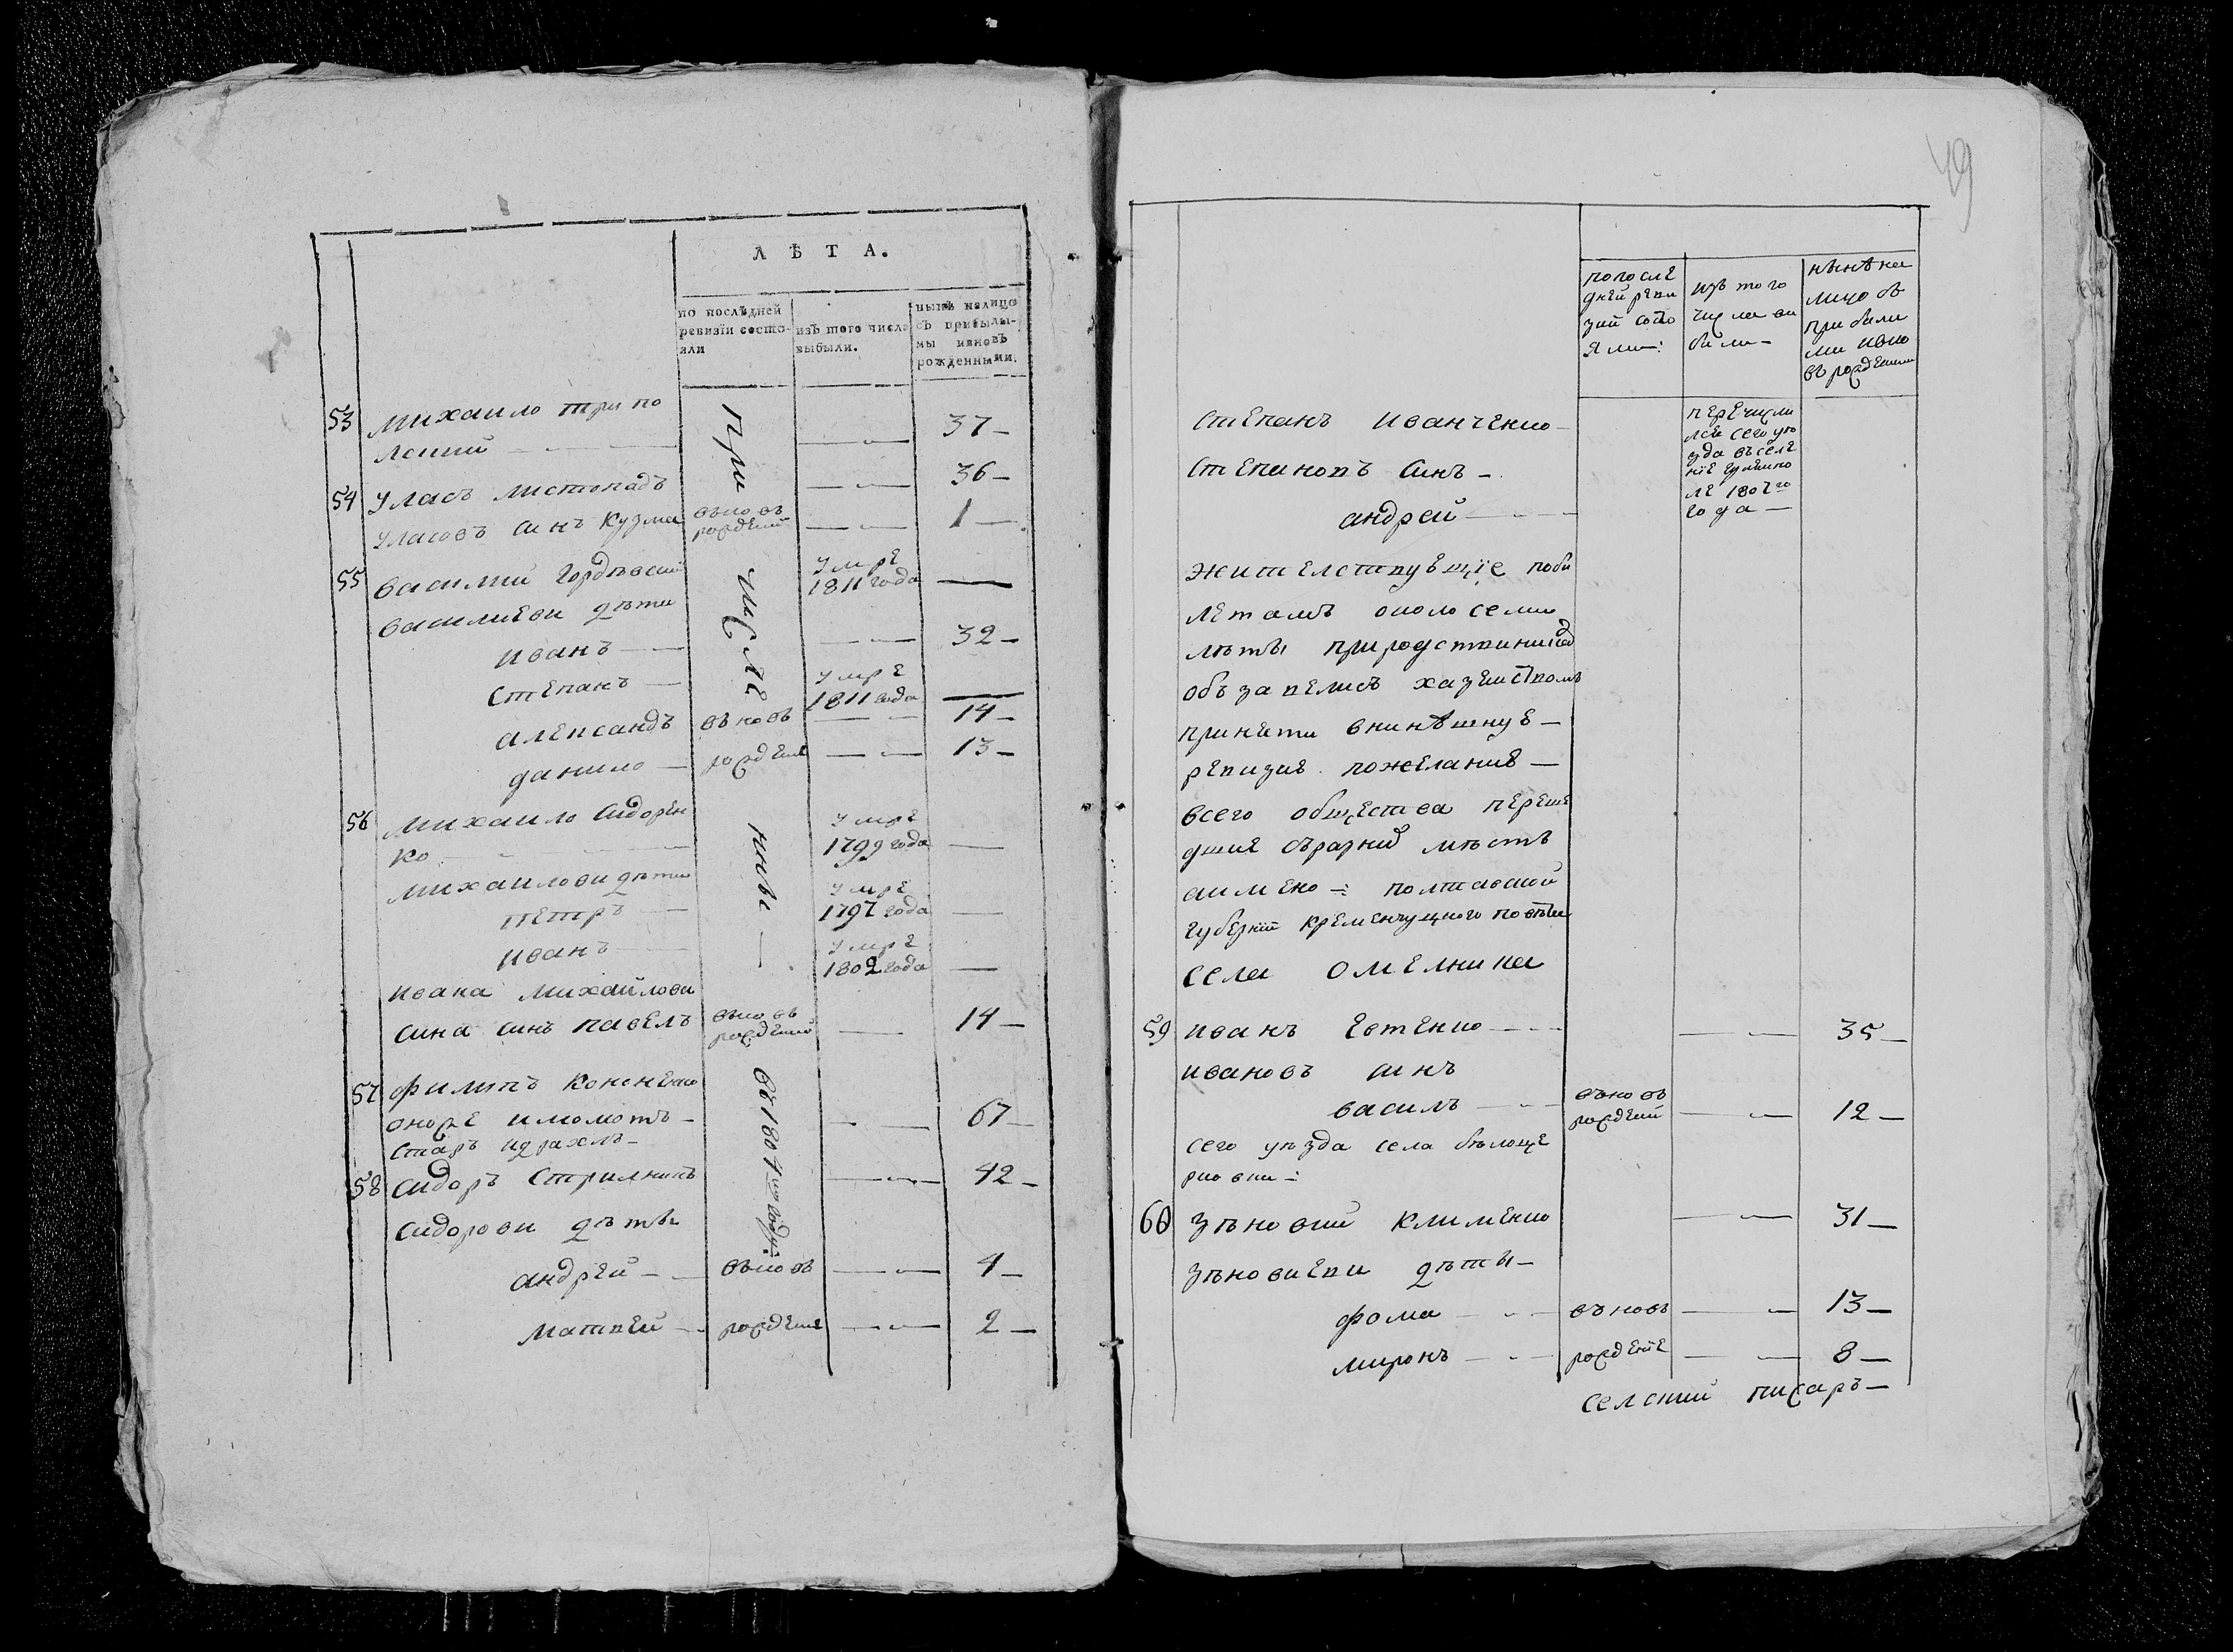 Л Ѣ Т А.
по послѣдней ревизіи состо-яли
изъ того числа выбыли.
нынѣ налицо съ прибылы-мы ивновъ рожденными.
53 михаило три по
лский — 37 —
При числе нны — въ 1801 году:
54 Уласъ листопадъ — 36 —
Уласовъ синъ кузма въновъ рожденій — 1 —
55 василий гордѣвский умре 1811 года —
василиеви дѣти
иванъ — 32 —
степанъ — умре 1811 года —
александъ въновъ — 14 —
данило — рождение — 13 —
56 михаило сидорен
ко — умре 1799 года —
михаилови дѣти
петръ — умре 1797 года —
иванъ — умре 1802 года —
ивана михайлови
сина синъ павелъ въновъ рождений — 14 —
57 филипъ кононенко
67 —
старъ идрахлъ —
58 сидоръ стрилникъ — 42 —
сидорови дѣты
андрей — въновъ — 4 —
матвей — рождение — 2 —
49
попосле дней реви зий состо яли:
изъ того числа ви били —
нынѣ на лицо съ при били ми ивно въ рождении
степанъ иванченко —
перечисли лся сего уѣ зда въселе ние гуляипо ле 1807го года —
степановъ синъ —
андрей —
жителствующіе поби
летамъ около семи
лѣты природствиникад
объзавелисъ хазеиствомъ
приняти внинѣшнуе —
ревизие пожелание —
всего общества переше
дшие сърарний мѣстъ
аимено: полтавской
губерній кременчуцного повѣта
села омелника
59 иванъ Евтенко — 35 —
ивановъ синъ
василъ — въновъ рождений — 12 —
сего уѣзда села бѣлоце
рковки:
60 зѣновий клименко — 31 —
зѣновиеви дѣты —
фома — въновъ — 13 —
миронъ — рожденіе — 8 —
селский писаръ —